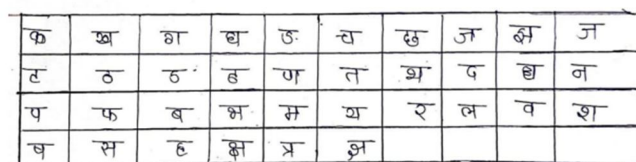 क ख ग घ ङ च छ ज झ ज
ट ठ ठ ड ण त थ द ध न
प फ ब भ म य र ल व श
ष स ह क्ष प्र क्ष